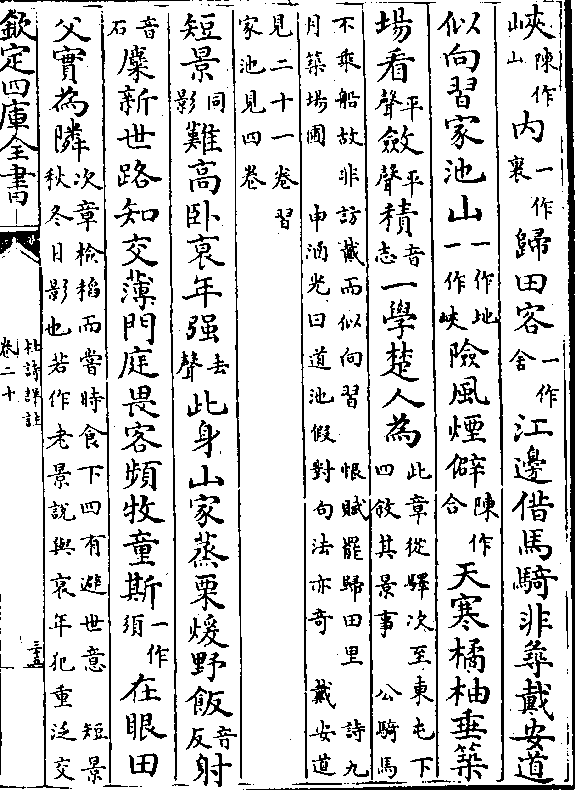 峽陳作山内一作裏歸田客一作舍江邊借馬騎非尋戴安道
似向習家池山一作地一作峽險風煙僻陳作合天寒橘柚垂築
場看平聲斂平聲積音志一學楚人為此章從驛次至東屯下四敘其景事 公騎馬
不乘船故非訪戴而似向習 恨賦罷歸田里 詩九
月築場圃 申涵光曰道池假對句法亦奇 戴安道
見二十一卷習
家池見四卷
短景同影難高卧衰年强去聲此身山家蒸栗煖野飯音反射
音石麋新世路知交薄門庭畏客頻牧童斯一作須在眼田
父實為隣次章檢稻而當時食下四有避世意 短景
秋冬日影也若作老景說與衰年犯重 泛交
欽定四庫全書
杜詩詳註
卷二十